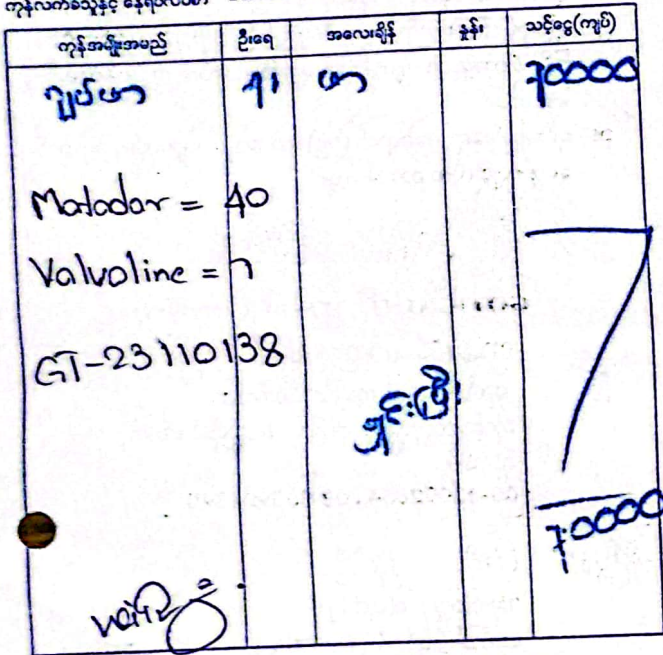 ကုန်လက်ခံသူနှင့် နေရပ်လိပ်စာ
ကုန်အမျိုးအမည် ဦးရေ အလေးချိန် နှုန်း သင့်ငွေ(ကျပ်)
၇၀၀၀၀
Matador = 40
Valvoline = ၇
GT-23110138
ရှင်းပြီး
၇၀၀၀၀